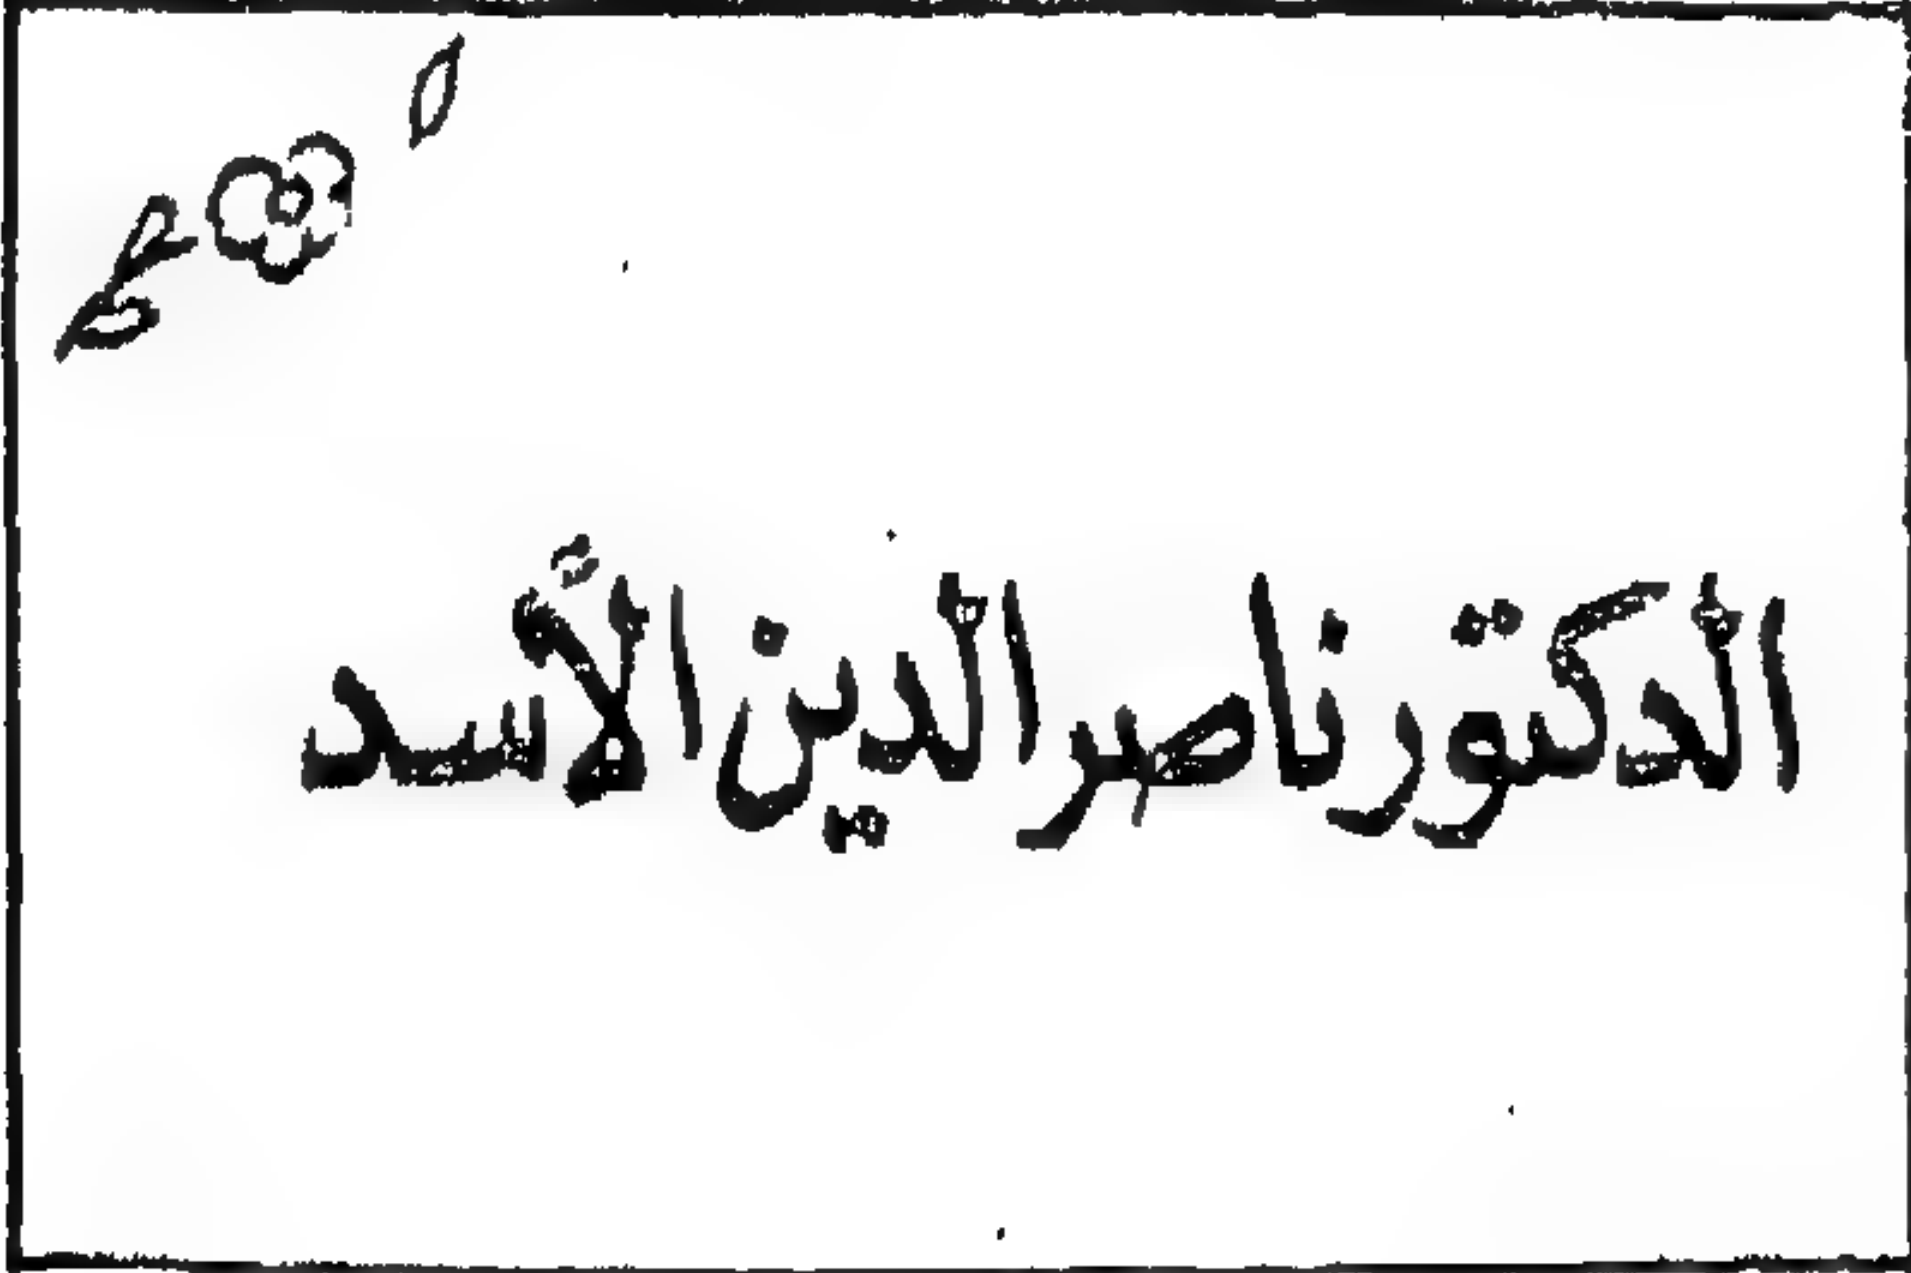 الدكتور ناصر الدين الأسد